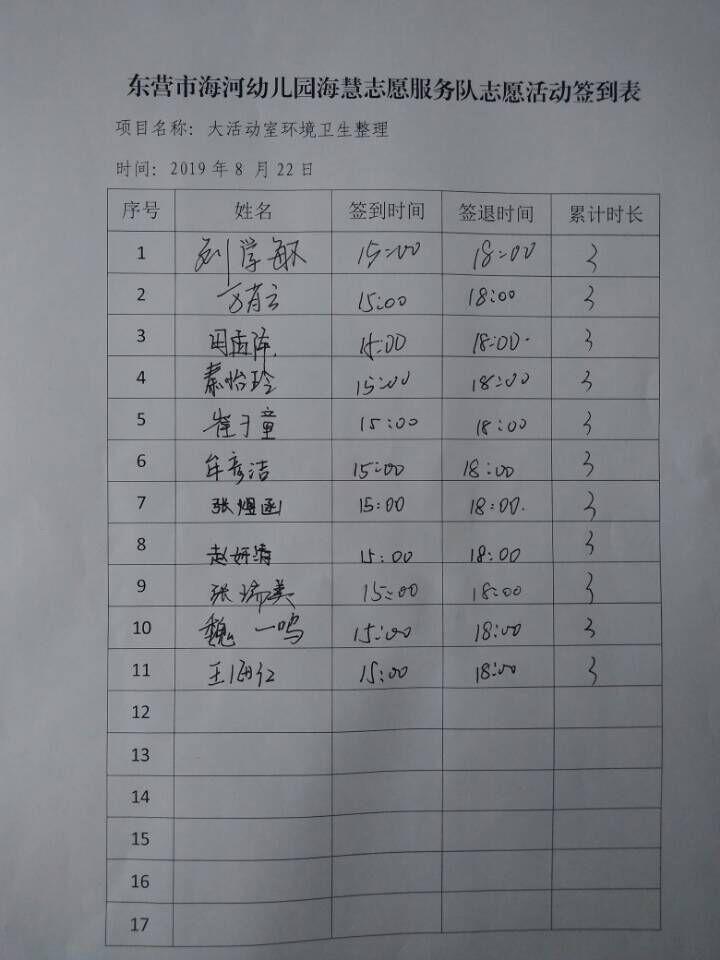 东营市海河幼儿园海慧志愿服务队志愿活动签到表
项目名称：大活动室环境卫生整理
时间：2019年8月22日
序号 姓名 签到时间 签退时间 累计时长
1 刘学敏 15:00 18:00 3
2 万芹云 15:00 18:00 3
3 15:00 18:00. 3
4 秦怡玲 15:00 18:00 3
5 崔子童 15:00 18:00 3
6 牟彦洁 15:00 18:00 3
7 张煜函 15:00 18:00. 3
8 赵妍清 15:00 18:00 3
9 张瑞美 15:00 18:00 3
10 魏一鸣 15:00 18:00 3
11 王海红 15:00 18:00 3
12
13
14
15
16
17